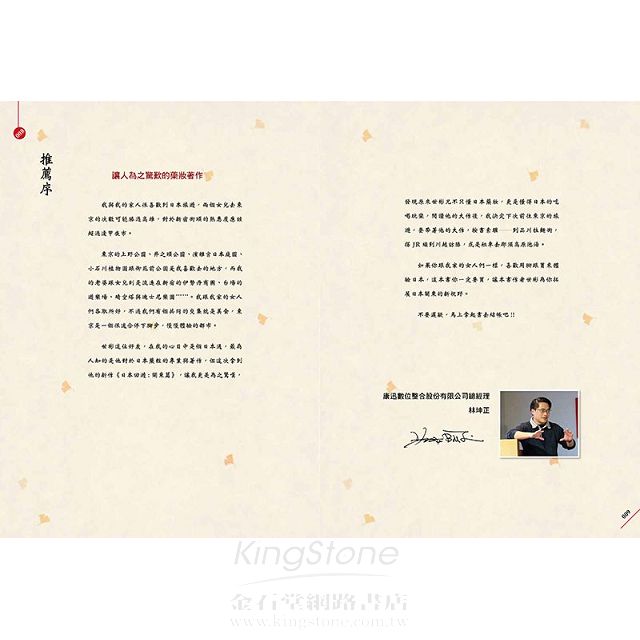 008
推薦序
讓人為之驚歎的藥妝著作
我與我的家人很喜歡到日本旅遊，兩個女兒去東
京的次數可能勝過高雄，對於新宿街頭的熟悉度應該
超過逢甲夜市。
東京的上野公園、井之頭公園、濱離宮日本庭園、
小石川植物園跟御苑前公園是我喜歡去的地方，而我
的老婆跟女兒則是流連在新宿的伊勢丹商圈、台場的
遊樂場、晴空塔與迪士尼樂園……。我跟我家的女人
們各取所好，不過我們有個共同的交集就是美食，東
京是一個很適合停下腳步，慢慢體驗的都市。
世彬這位好友，在我的心目中是個日本通，最為
人知的是他對於日本藥粧的專業與著作，但這次拿到
他的新作《日本回遊：關東篇》，讓我更是為之驚嘆，
發現原來世彬兄不只懂日本藥妝，更是懂得日本的吃
喝玩樂，閱讀他的大作後，我決定下次前往東京的旅
遊，要帶著他的大作，按書索驥──到品川拉麵街，
搭JR繞到川越訪勝，或是租車去那須高原泡湯。
如果你跟我家的女人們一樣，喜歡用腳跟買來體
驗日本，這本書你一定要買，讓本書作者世彬為你拓
展日本關東的新視野。
不要遲疑，馬上拿起書去結帳吧!!
康迅數位整合股份有限公司總經理
林坤正
009
KingStone
金石堂網路書店
www.kingstone.com.tw